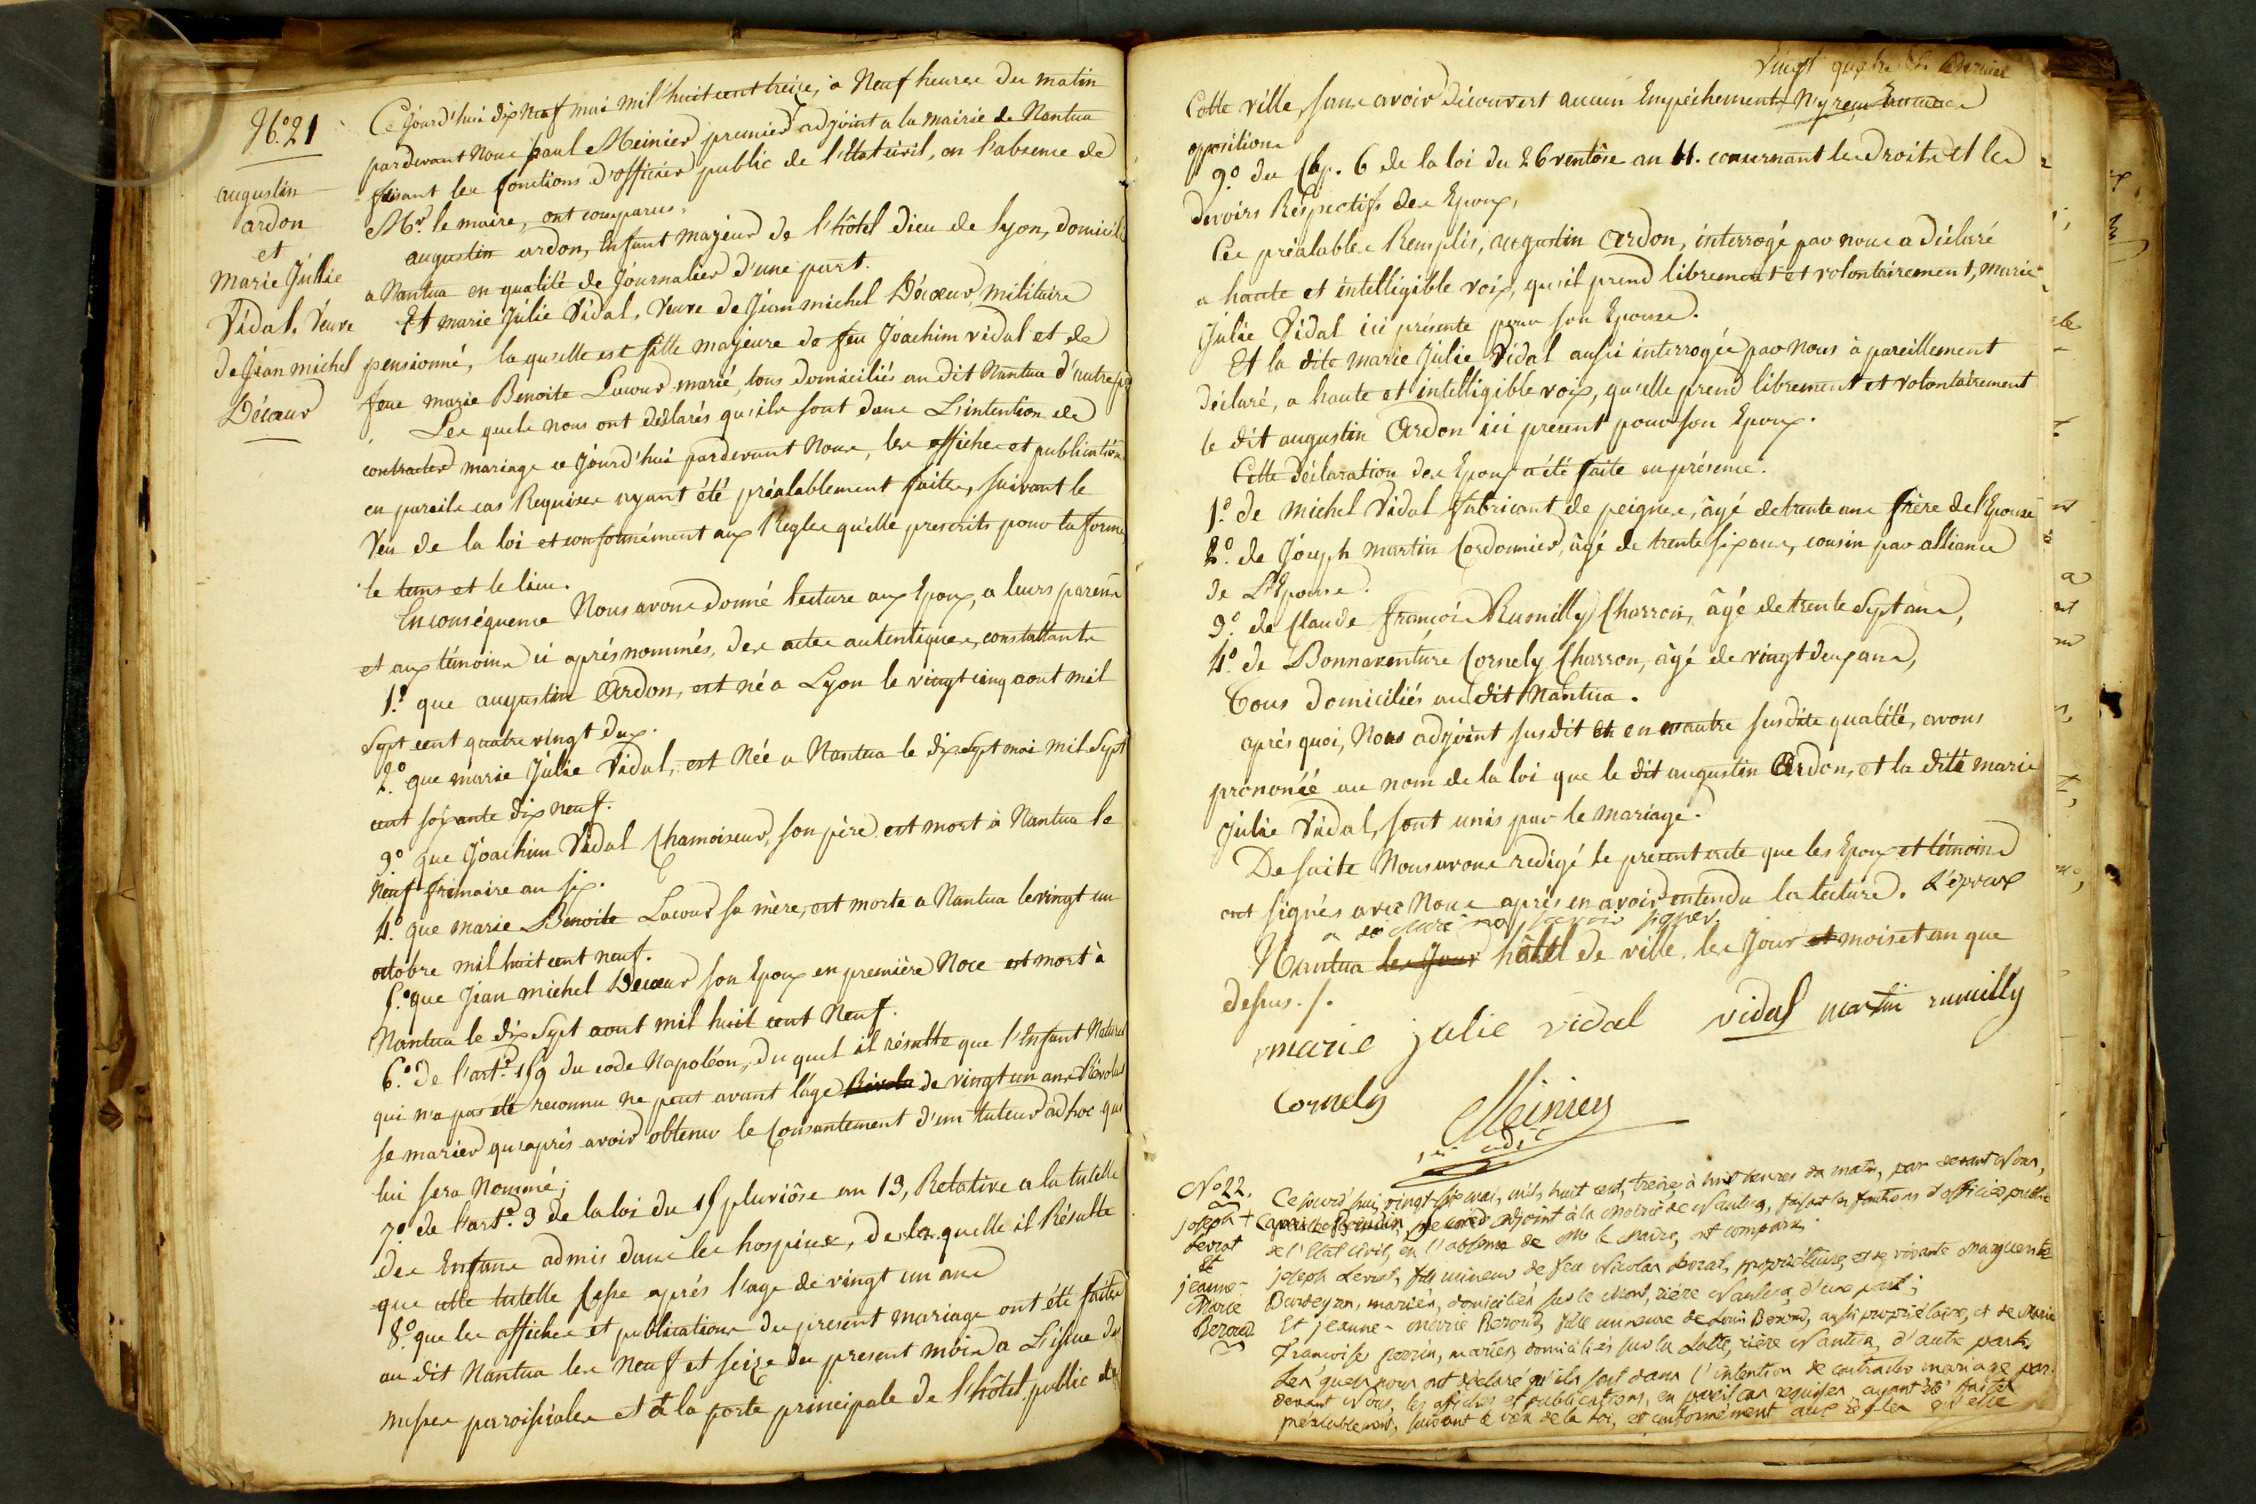 N.º 21
augustin
ardon
et
Marie Julie
Vidal. Veuve
de Jean michel
Décœur
Ce Jourd'hui dix Neuf mai mil huit cent treize, à Neuf heures du matin
pardevant Nous paul Meinier premier adjoint a la mairie de Nantua
faisant les fonctions d'officier public de l'Etat civil, en l'absence de
Mr. le maire, ont comparus.
augustin ardon, Enfant majeur de l'hôtel dieu de lyon, domicilié
a Nantua en qualité de Journalier d'une part.
Et marie Julie Vidal, Veuve de Jean michel Décœur, militaire
pensionné, la quelle est fille majeure de feu Joachim vidal et de
feue marie Benoite Lacour marié, tous domiciliés au dit Nantua d'autre
Les quels nous ont déclarés qu'ils sont dans L'intention de
contracter mariage ce Jourd'hui pardevant Nous, les affiches et publications
en pareils cas Requises ayant été préalablement faites, suivant le
Veu de la loi et conformément aux Regles qu'elle prescrits pour la forme
le tems et le lieu.
En conséquence Nous avons donné lecture aux Epoux, a leurs parens
et aux témoins ci après nommés, des actes autentiques, constattants
1.º que augustin Ardon, est né a Lyon le vingt cinq aout mil
Sept cent quatre vingt dux.
2.º que marie Julie Vidal, est Née a Nantua le dix Sept mai mil Sept
cent soixante dix neuf.
3.º que Joachim Vidal Chamoiseur, son père est mort à Nantua le
Neuf frimaire an six.
4.º que marie Benoite Lacour sa mère, est morte a Nantua le vingt un
octobre mil huit cent neuf.
5.º que Jean michel Décœur son Epoux en première Noce est mort à
Nantua le dix Sept aout mil huit cent Neuf.
6.º de l'art.e 159 du code Napoléon, du quel il résulte que l'Enfant Naturel
qui n'a pas été reconnu ne peut avant l'âge de vingt un ans Révolus
se marier qu'après avoir obtenu le Consentement d'un tuteur ad hoc qui
lui sera Nommé;
7.º de l'art.e 3 de la loi du 15 pluviôse an 13, Relative a la tutelle
des Enfans admis dans les hospices, de la quelle il Résulte
que cette tutelle Cesse après l'age de vingt un ans
8.º que les affiches et publications du present mariage ont été faites
au dit Nantua les Neuf et seize du present mois a L'issue des
messes parroissiales et à la porte principale de l'hôtel public de
Vingt quatre
Cette ville, sans avoir découvert aucun Empéchement, Ny reçu Aucune
opposition
9.º du Cap. 6 de la loi du 26 ventôse an 11. concernant les droits et les
devoirs Respectifs des Epoux,
Ces préalables Remplis, augustin Ardon, interrogé par nous a Déclaré
a haute et intelligible voix, qu'il prend librement et volontairement, marie
Julie Vidal ici présente pour son Epouse.
Et la dite marie Julie Vidal aussi interrogée par Nous à pareillement
déclaré, a haute et intelligible voix, qu'elle prend librement et volontairement
le dit augustin Ardon ici présent pour son Epoux.
Cette déclaration des Epoux a été faite en présence.
1.º de Michel Vidal fabricant de peignes, âgé de trente ans frère de l'Epouse
2.º de Joseph martin Cordonnier, âgé de trente six ans, cousin par alliance
de L'Epouse.
3.º de Claude françois Rumilly Charron, âgé de trente Sept ans,
4.º de Bonnaventure Cornely Charron, âgé de vingt deux ans,
Tous domiciliés au dit Nantua.
après quoi, Nous adjoint susdit et en notre susdite qualité, avons
prononcé au nom de la loi que le dit augustin Ardon, et la dite marie
Julie Vidal, sont unis par le mariage.
De suite Nous avons redigé le present acte que les Epoux et témoins
ont signés avec Nous après en avoir entendu la lecture. L'époux
a déclaré ne savoir signer
Nantua les Jour hôtel de ville, les Jour et mois et an que
dessus./.
marie julie vidal vidal martin rumilly
Cornely Meinier
N.º 22.
joseph
Levrat
Et
jeanne-
Marie
Beroud
Ce jourd'hui, vingt-six mai, mil huit cent, treize, à huit heures du matin, par devant Nous,
adjoint à la Mairie de Nantua, faisant les fonctions d'officier public
de l'Etat civil, en l'absence de Mr le Maire, ont comparu.
joseph Levrat, fils mineur de feu Nicolas Levrat, propriétaire, et de vivante Marguerite
mariés, domiciliés sur le Mont, rière Nantua, d'une part;
Et jeanne-Marie Beroud, fille mineure de Louis Beroud, aussi propriétaire, et de Marie
Françoise mariés, domiciliés sur la rière Nantua, d'autre part.
Lesquels nous ont déclaré qu'ils sont dans l'intention de contracter mariage par
devant Nous, les affiches et publications, en pareil cas requises ayant été faites
préalablement, suivant le vœu de la loi, et conformément aux règles qu'elle